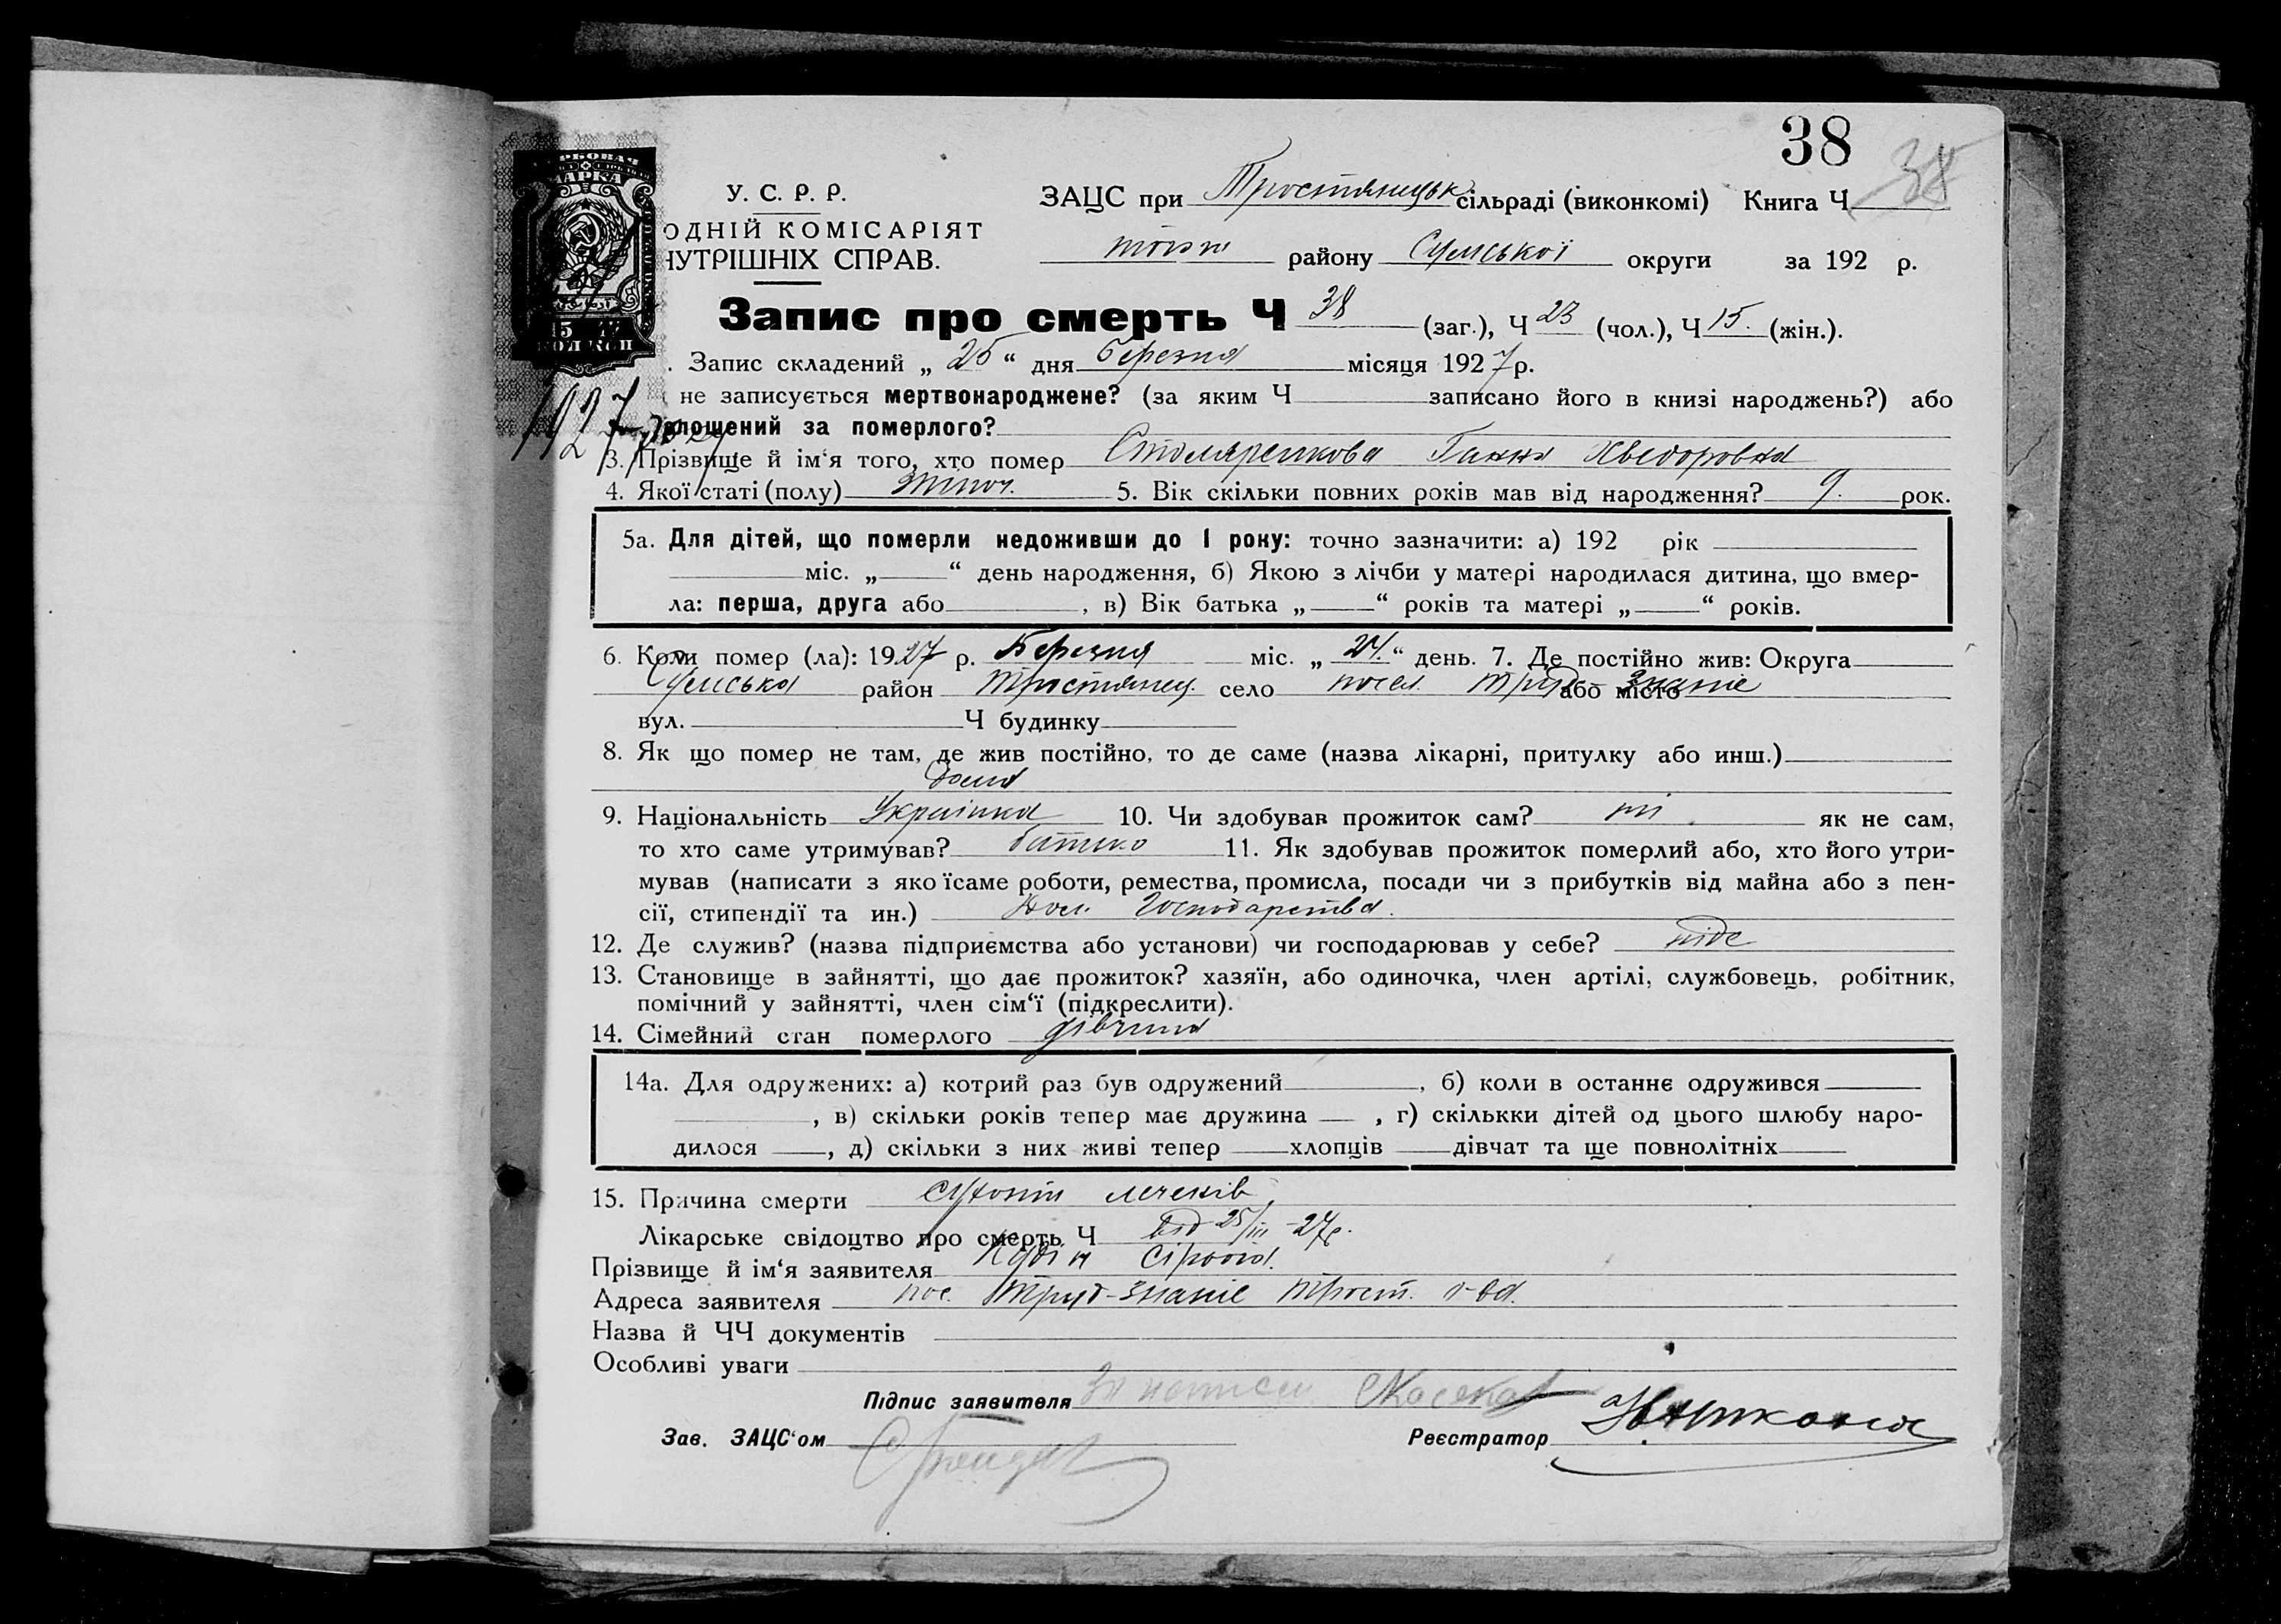 38
38
У. С. Р. Р.
ЗАЦС при Тростянецьк. сільраді (виконкомі) Книга Ч
ОДНІЙ КОМІСАРІЯТ
НУТРІШНІХ СПРАВ.
району Сумської округи за 192 р.
МАРКА
Запис про смерть Ч 38 (заг.), Ч 23 (чол.), Ч 15. (жін.).
15
КОП КОП
Запис складений „ 25 “ дня березня місяця 1927 р.
не записується мертвонароджене? (за яким Ч записано його в книзі народжень?) або
1927
лошений за померлого?
3. Прізвище й ім‘я того, хто помер Столяренкова Ганна Хведоровна
4. Якої статі (полу) жіноч. 5. Вік скільки повних років мав від народження? 9. рок.
5а. Для дітей, що померли недоживши до 1 року: точно зазначити: а) 192 рік
міс. „ “ день народження, б) Якою з лічби у матері народилася дитина, що вмер-
ла: перша, друга або , в) Вік батька „ “ років та матері „ “ років.
6. Коли помер (ла): 1927 р. Березня міс. „ 24. “ день. 7. Де постійно жив: Округа
Сумська район Тростянец. село посел. Труд або місто Знаніє
вул. Ч будинку
8. Як що помер не там, де жив постійно, то де саме (назва лікарні, притулку або инш.)
дома
9. Національність Українка 10. Чи здобував прожиток сам? ні як не сам,
то хто саме утримував? батько 11. Як здобував прожиток померлий або, хто його утри-
мував (написати з яко їсаме роботи, ремества, промисла, посади чи з прибутків від майна або з пен-
сії, стипендії та ин.) Господарства.
12. Де служив? (назва підприємства або установи) чи господарював у себе? ніде
13. Становище в зайнятті, що дає прожиток? хазяїн, або одиночка, член артілі, службовець, робітник,
помічний у зайнятті, член сім‘ї (підкреслити).
14. Сімейний стан померлого дівчина
14а. Для одружених: а) котрий раз був одружений , б) коли в останнє одружився
, в) скільки років тепер має дружина , г) скількки дітей од цього шлюбу наро-
дилося , д) скільки з них живі тепер хлопців дівчат та ще повнолітніх
15. Причина смерти сухоти легенів
Лікарське свідоцтво про смерть Ч від 25/III-27р.
Прізвище й ім‘я заявителя
Адреса заявителя пос. Труд-Знаніє Трост. р-на.
Назва й ЧЧ документів
Особливі уваги
Підпис заявителя
Зав. ЗАЦС‘ом
Реєстратор